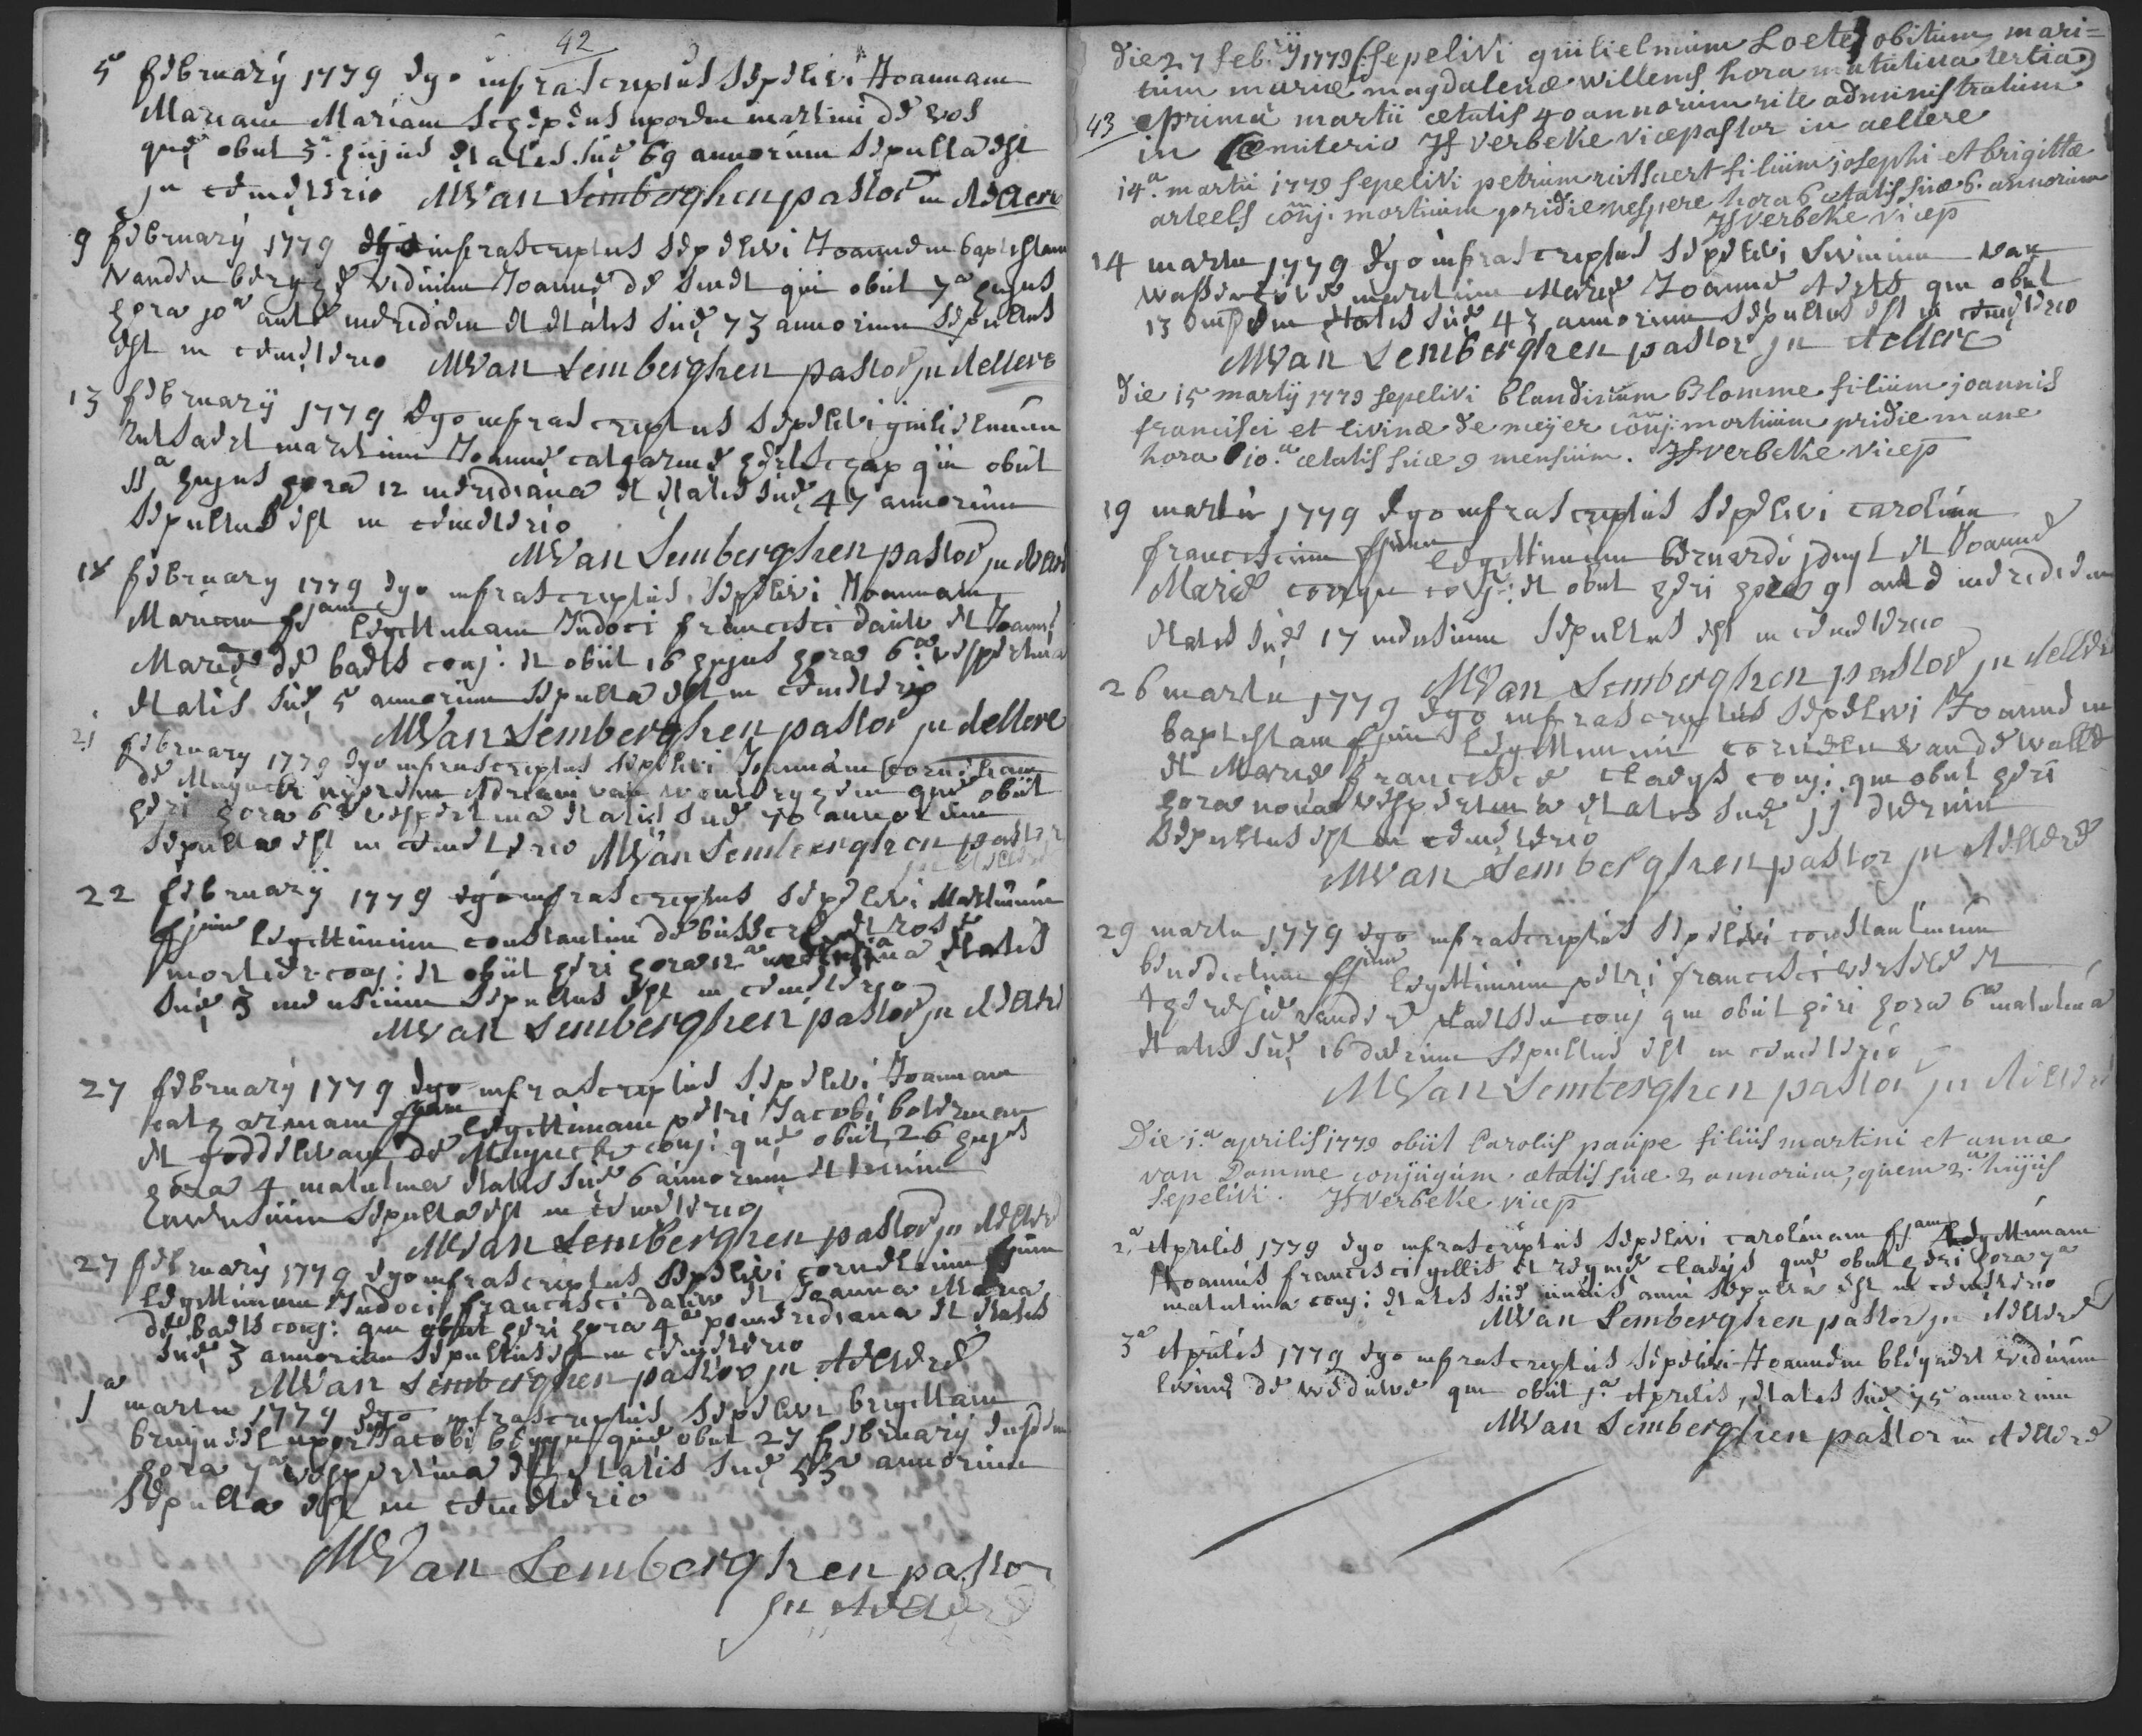 42
5a february 1779 ego infrascriptus sepelivi Joannam
Mariam Mariam scepens uxorem martini de vos
que obiit 3a hujus etatis sue 69 annorum sepulta est
in cemeterio MVan Lemberghen pastor in Aeltere
9 february 1779 ego infrascriptus sepelivi Joannem baptistam
vanden berghe viduum Joanne de smet qui obiit 7a hujus
hora 10a ante meridiem et etatis sue 73 annorum sepultus
est in cemeterio MVan Lemberghen pastor in Aeltere
13 february 1779 Ego infrascriptus sepelivi guilielmum
rutsaert maritum Joanne catharine hertschap qui obiit
11a hujus hora 12 meridiana et etatis sue 47 annorum
sepultus est in cemeterio
MVan Lemberghen pastor in Aeltere
18 february 1779 Ego infrascriptus sepelivi Joannam
Mariam fjam legittimam Judoci francisci dauw et Joanne
Marie de baets conj: et obiit 16 hujus hora 6a vespertina
etatis sue 5 annorum sepulta est in cemeterio
MVan Lemberghen pastor in Aeltere
21 february 1779 Ego infrascriptus sepelivi Joannam Corneliam
de Muynck uxorem Adriani van wonterghem que obiit
heri hora 6a vespertina etatis sue 70 annorum
sepulta est in cemeterio MVan Lemberghen pastor
in Aeltere
22 february 1779 ego infrascriptus sepelivi Martinum
fjum legittimum constantini de busschere et rose
mortier conj: et obiit heri hora 12a meridiana etatis
sue 3 mensium sepultus est in cemeterio
MVan Lemberghen pastor in Aeltere
27 february 1779 Ego infrascriptus sepelivi Joannam
catharinam fjam legittimam petri Jacobi bolerman
et godelivam de Muynck conj: que obiit 26 hujus
hora 4 matutina etatis sue 6 annorum et trium
mensium sepulta est in cemeterio
MVan Lemberghen pastor in Aeltere
27 february 1779 Ego infrascriptus sepelivi cornelium fjum
legittimum Judoci francisci dauw et Joanna Maria
de baets conj: qui obiit heri hora 4a pomeridiana et etatis
sue 3 annorum sepultus est in cemeterio
MVan Lemberghen pastor in Aeltere
1a martii 1779 Ego infrascriptus sepelivi brigittam
bruyneel uxor Jacobi que obiit 27 february ejusdem
hora 7a vespertina et etatis sue 53 annorum
sepulta est in cemeterio
MVan Lemberghen pastor
in Aeltere
Die 27 feb:ij 1779 sepelivi guilielmum Loete obitum mari=
tum mariæ magdalenæ willems hora matutina tertia
43 prima martii ætatis 40 annorum rite administratum
in Cæmiterio JF verbeke vicepastor in aeltere
14a. martii 1779 sepelivi petrum rutsaert filium josephi et brigittæ
arteels conj: mortuum pridie vespere hora 6 ætatis suæ 6. annorum
JF verbeke vicep
14 martii 1779 Ego infrascriptus sepelivi Livinum van
wassenhove maritum Marie Joanne Aerts qui obiit
13 ejusdem etatis sue 43 annorum sepultus est in cemeterio
MVan Lemberghen pastor in Aeltere
Die 15 martij 1779 sepelivi blandinum Blomme filium joannis
francisci et livinæ de meijer conj: mortuum pridie mane
hora 10.a ætatis suæ 9 mensium. JF verbeke vicep
19 martii 1779 Ego infrascriptus sepelivi carolum
franciscum fjum legittimum bernardi ... et Joanne
Marie ... conj: et obiit heri hora 9 ante meridiem
etatis sue 17 mensium sepultus est in cemeterio
MVan Lemberghen pastor in Aeltere
26 martii 1779 Ego infrascriptus sepelivi Joannem
baptistam fjum legittimum cornelii vande walle
et Marie francisce claeys conj: qui obiit heri
hora nona vespertina etatis sue 11 dierum
sepultus est in cemeterio
MVan Lemberghen pastor in Aeltere
29 martii 1779 ego infrascriptus sepelivi constantinum
benedictum fjum legittimum petri francisci versele et
theresie vander plaetsen conj qui obiit heri hora 6a matutina
etatis sue 16 dierum sepultus est in cemeterio
MVan Lemberghen pastor in Aeltere
Die 1.a aprilis 1779 obiit Carolus paupe filius martini et annæ
van Damme conjugum. ætatis suæ 2 annorum, quem 2.a hujus
sepelivi. JF verbeke vicep
2a Aprilis 1779 Ego infrascriptus sepelivi carolinam fjam legittimam
Joannis francisci gellis et regine claeys que obiit heri hora 7a
matutina conj: etatis sue unius anni sepulta est in cemeterio
MVan Lemberghen pastor in Aeltere
3a Aprilis 1779 Ego infrascriptus sepelivi Joannem bleyaert viduum
livine de weduwe qui obiit 1a Aprilis, etatis sue 75 annorum
MVan Lemberghen pastor in Aeltere